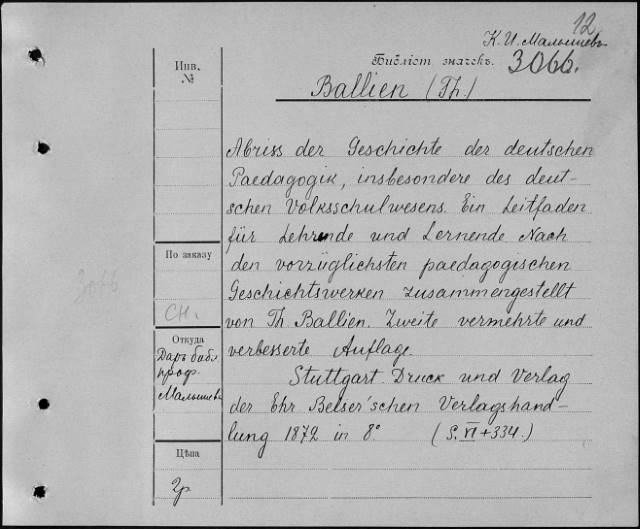 12
К. И. Малышевъ
Библіот. значекъ. 3066.
Ballien (Th.)
Инв.
№
Abriss der Geschichte der deutschen
Paedagogik, insbesondere des deut-
schen Volksschulwesens. Ein Leitfaden
für Lehrende und Lernende Nach
den vorzüglichsten paedagogischen
Geschichtswerken zusammengestellt
von Th. Ballien. Zweite vermehrte und
verbesserte Auflage.
Stuttgart. Druck und Verlag
der Chr Belser'schen Verlagshand-
lung 1872 in 8° (S. VI+334.)
По заказу
3066
СН.
Откуда
Даръ библ.
проф.
Малышевъ
Цѣна
2р